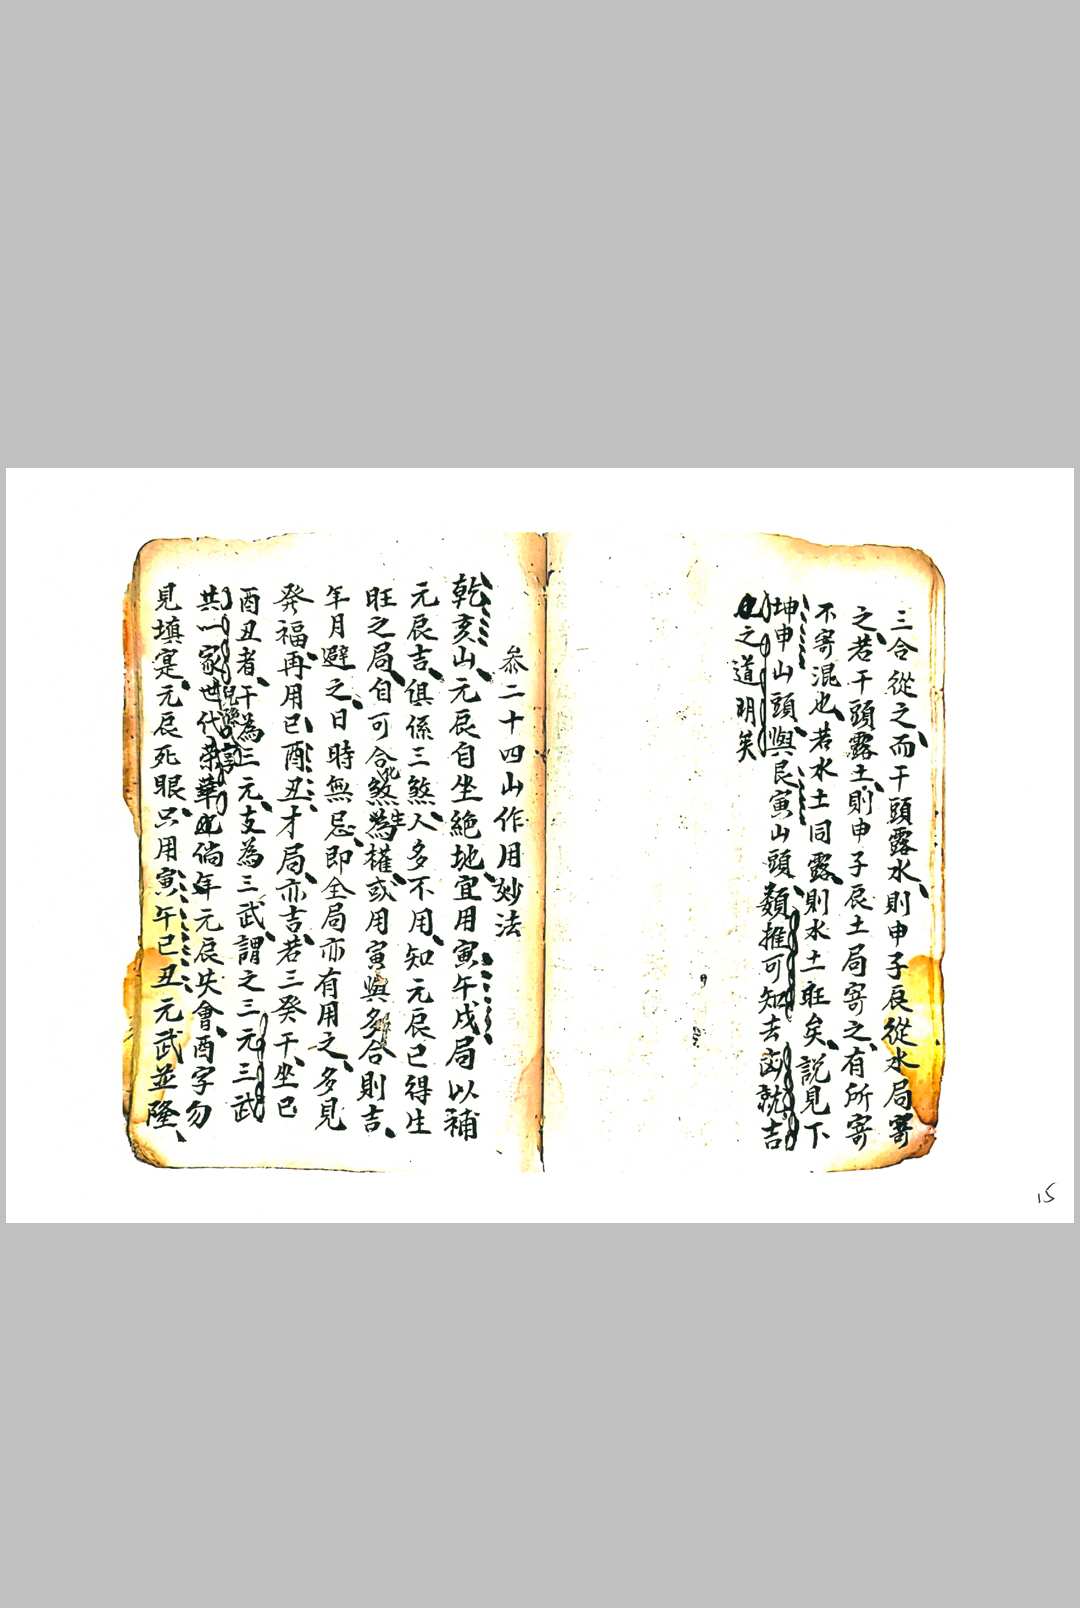 三合從之而干頭露水則申子辰從水局寄
之若干頭露土則申子辰土局寄之有所寄
不寄混也若水土同露則水土旺矣說見下
坤申山頭與艮寅山頭類推可知去凶就吉
之道明矣
叅二十四山作用妙法
乾亥山元辰自坐絶地宜用寅午戌局以補
元辰吉俱係三煞人多不用知元辰已得生
旺之局自可合煞為權或用寅與多合則吉
年月避之日時無忌即全局亦有用之多見
發福再用巳酉丑才局亦吉若三癸干坐巳
酉丑者干為三元支為三武謂之三元三武
共一家世代榮華也倘年元辰失會酉字勿
見填寔元辰死眼只用寅午巳丑元武並隆
15